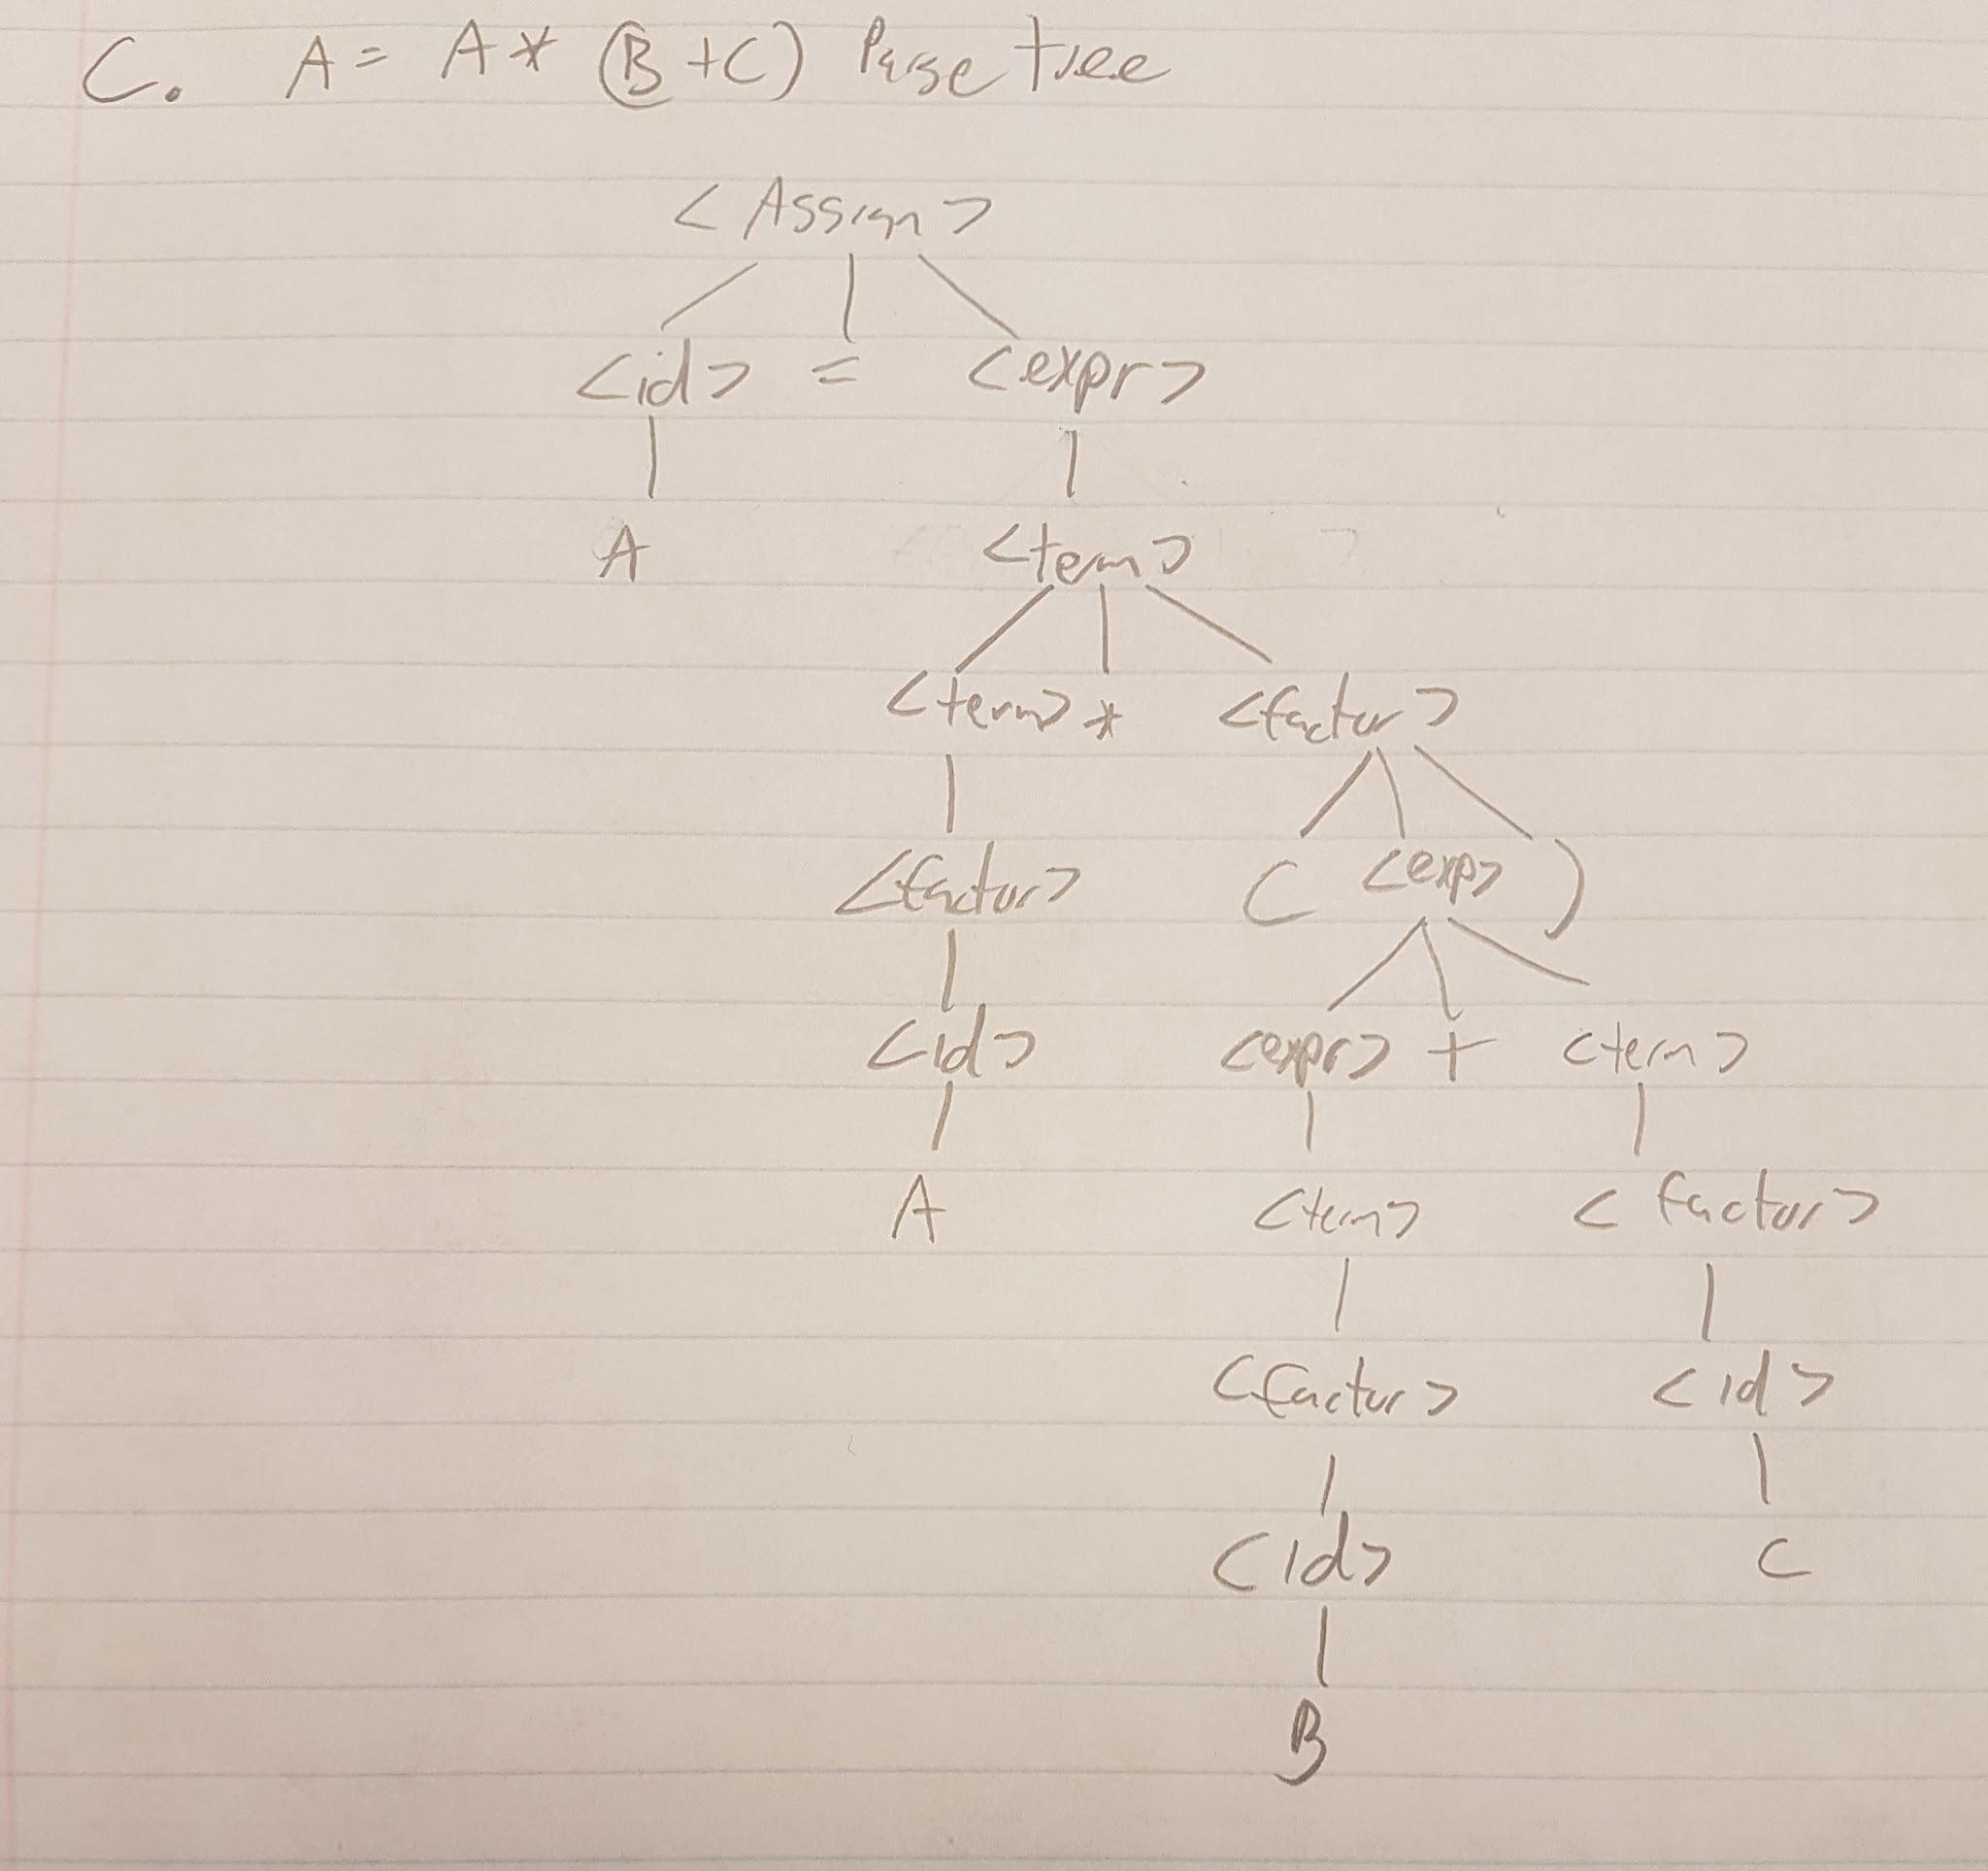 C. A = A * (B + C) Parse tree
<Assign>
<id> = <expr>
A <term>
<term> * <factor>
<factor> ( <exp> )
<id> <expr> + <term>
A <term> <factor>
<factor> <id>
<id> C
B